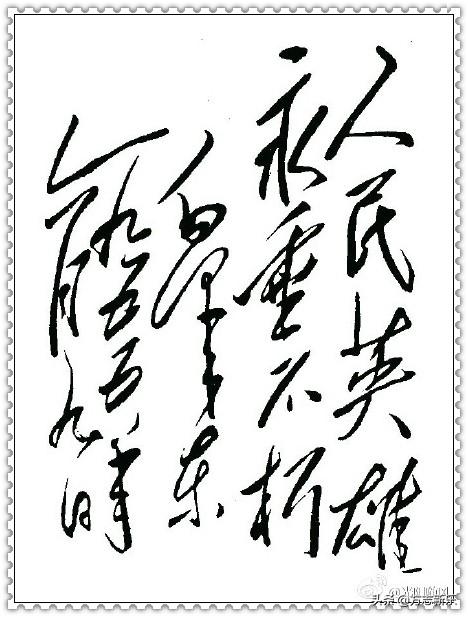 人民英雄
永垂不朽
毛泽东
一九五五年
月九日
头条 @方志新